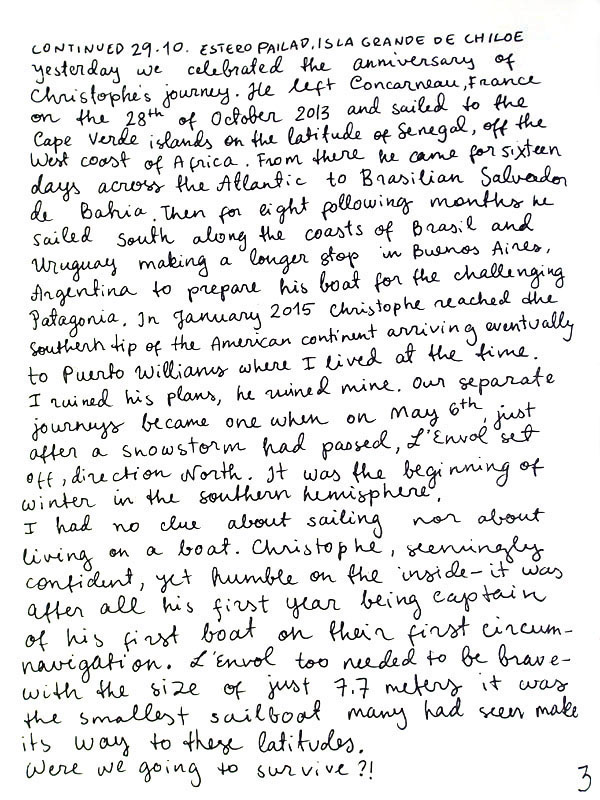 CONTINUED 29.10. ESTERO PAILAD, ISLA GRANDE DE CHILOE
yesterday we celebrated the anniversary of
Christophe's journey. He left Concarneau, France
on the 28th of October 2013 and sailed to the
Cape Verde islands on the latitude of Senegal, off the
West coast of Africa. From there he came for sixteen
days across the Atlantic to Brasilian Salvador
de Bahia. Then for eight following months he
sailed south along the coasts of Brasil and
Uruguay making a longer stop in Buenos Aires,
Argentina to prepare his boat for the challenging
Patagonia. In January 2015 Christophe reached the
southern tip of the American continent arriving eventually
to Puerto Williams where I lived at the time.
I ruined his plans, he ruined mine. Our separate
journeys became one when on May 6th, just
after a snowstorm had passed, L'Envol set
off, direction North. It was the beginning of
winter in the southern hemisphere.
I had no clue about sailing nor about
living on a boat. Christophe, seemingly
confident, yet humble on the inside - it was
after all his first year being captain
of his first boat on their first circum-
navigation. L'Envol too needed to be brave -
with the size of just 7.7 meters it was
the smallest sailboat many had seen make
its way to these latitudes.
Were we going to survive?!
3